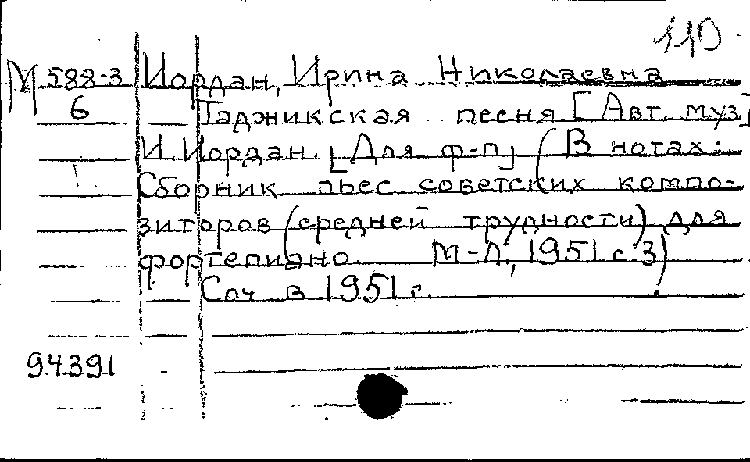 110
М 588-3 Иордан, Ирина Николаевна
6 Таджикская песня [Авт. муз.]
И. Иордан. [Для ф-п] (В нотах:
Сборник пьес советских компо-
зиторов (средней трудности) для
фортепиано. М-Л., 1951 с 3)
Соч в 1951 г.
9.4.391